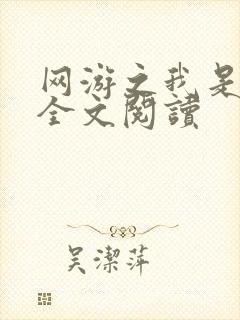 网游之我是
全文閱讀
吴潔萍